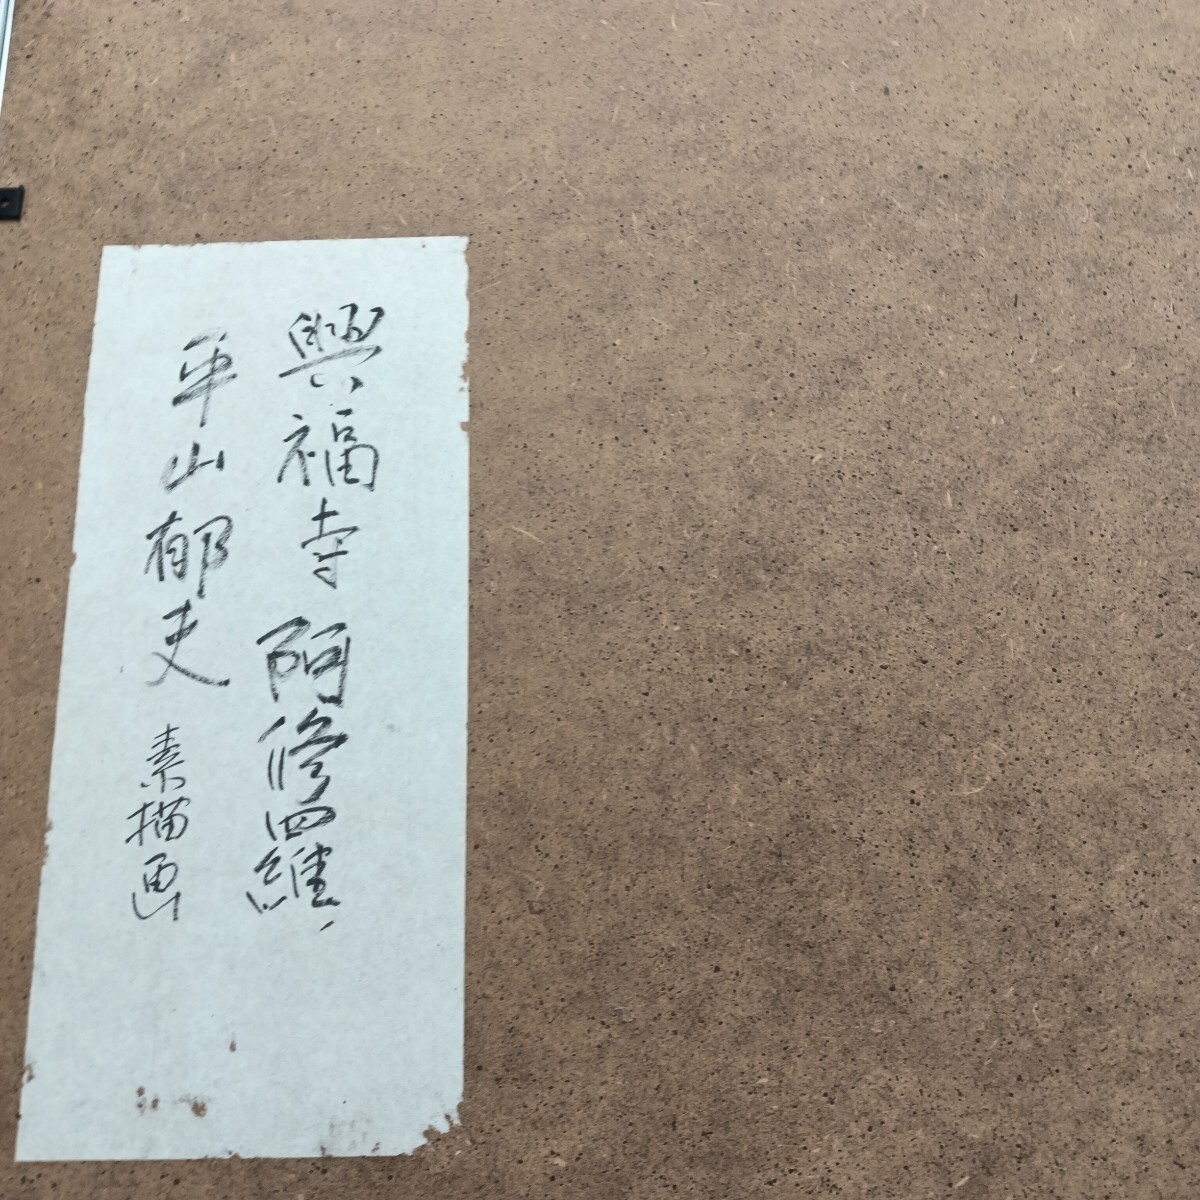 興福寺 阿修羅
平山郁夫 素描画